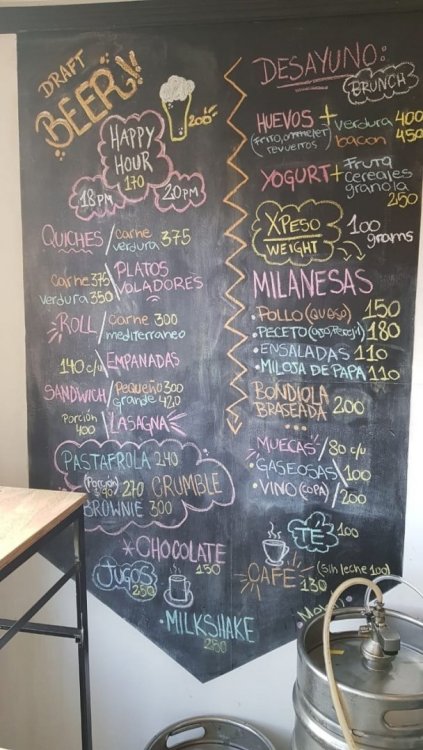 DRAFT
BEER!
200
HAPPY
HOUR
170
18PM
20PM
QUICHES / carne
verdura 375
carne 375
verdura 350
PLATOS
VOLADORES
ROLL / carne 300
mediterraneo
140 c/u EMPANADAS
SANDWICH / Pequeño 300
grande 420
Porción
400
LASAGNA
PASTAFROLA 240
(Porción)
270 CRUMBLE
BROWNIE 300
*CHOCOLATE
150
JUGOS
250
•MILKSHAKE
250
DESAYUNO:
BRUNCH
HUEVOS + verdura 400
revueltos) bacon 450
YOGURT + Fruta
cereales
granola
250
XPESO
WEIGHT
100
grams
MILANESAS
•POLLO (QUESO) 150
•PECETO (ajo, Perejil) 180
•ENSALADAS 110
•MILOJA DE PAPA 110
BONDIOLA
BRASEADA 200
MUECAS / 80 c/u
•GASEOSAS / 100
•VINO (COPA) / 200
TÉ 100
CAFÉ (sin leche 100)
130